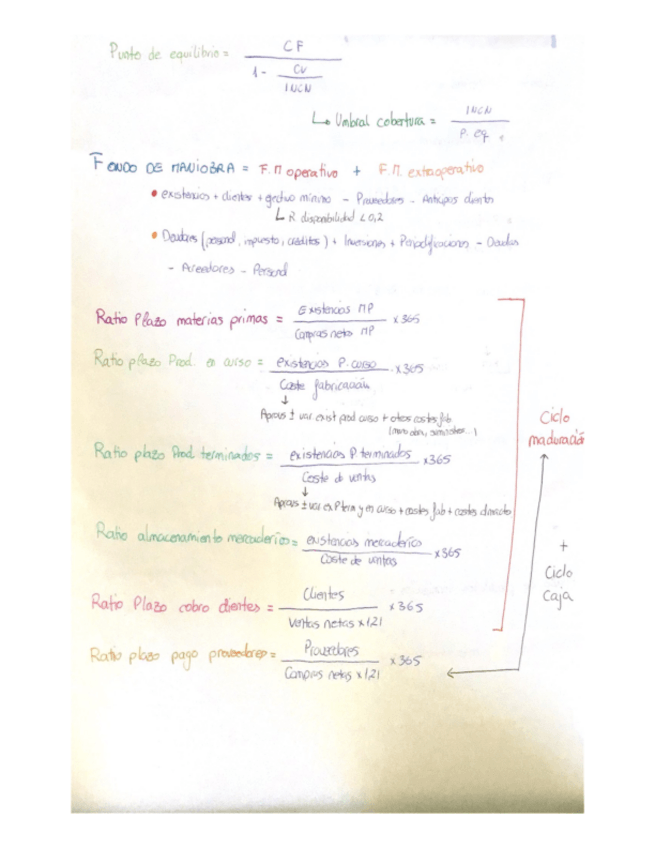 Punto de equilibrio = CF
1 - CV
INCN
↳ Umbral cobertura = INCN
P. eq.
FONDO DE MANIOBRA = F.M operativo + F.M. extraoperativo
• existencias + clientes + efectivo mínimo - Proveedores - Anticipos clientes
↳ R disponibilidad < 0,2
• Deudores (personal, impuesto, créditos) + Inversiones + Periodificaciones - Deudas
- Acreedores - Personal
Ratio Plazo materias primas = Existencias MP x 365
Compras netas MP
Ratio plazo Prod. en curso = existencias P. curso x 365
Coste fabricación
↓
Aprovis ± var exist prod curso + otros costes fab
(mano obra, suministros...)
Ciclo
maduración
Ratio plazo Prod terminados = existencias P terminados x 365
Coste de ventas
↓
Aprovis ± var ex P term y en curso + costes fab + costes directos
Ratio almacenamiento mercaderías = existencias mercaderías x 365
Coste de ventas
+
Ciclo
Caja
Ratio Plazo cobro clientes = Clientes x 365
Ventas netas x 1,21
Ratio plazo pago proveedores = Proveedores x 365
Compras netas x 1,21